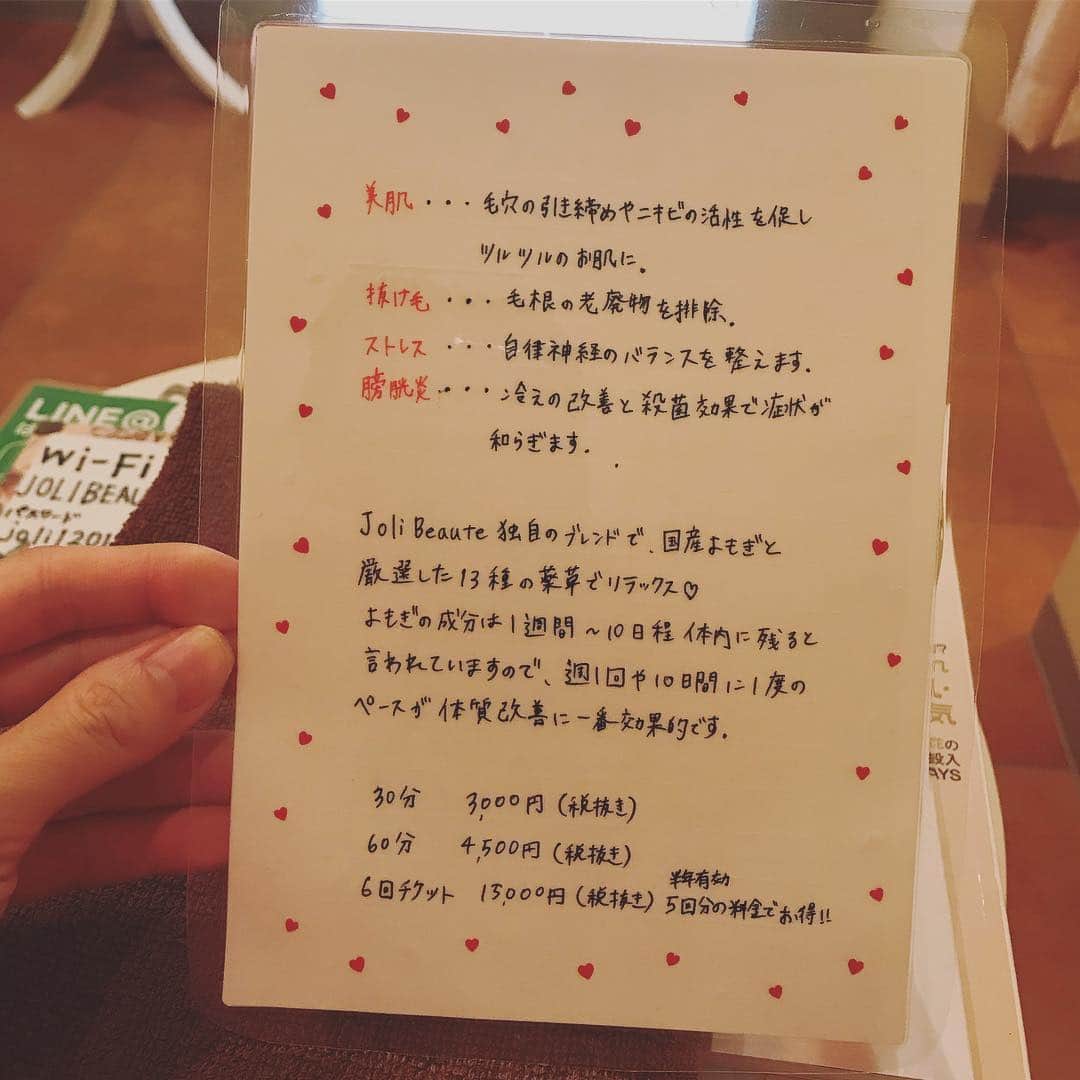 美肌・・・毛穴の引き締めやニキビの活性を促し
ツルツルのお肌に。
抜け毛・・・毛根の老廃物を排除。
ストレス・・・自律神経のバランスを整えます。
膀胱炎・・・冷えの改善と殺菌効果で症状が
和らぎます。
Joli Beaute 独自のブレンドで、国産よもぎと
厳選した13種の薬草でリラックス♡
よもぎの成分は1週間～10日程体内に残ると
言われていますので、週1回や10日間に1度の
ペースが体質改善に一番効果的です。
30分 3,000円(税抜き)
60分 4,500円(税抜き)
半年有効
6回チケット 15,000円(税抜き) 5回分の料金でお得!!
LINE@
Wi-Fi
JOLIBEAU
パスワード
joli1201
気
の
投入
AYS